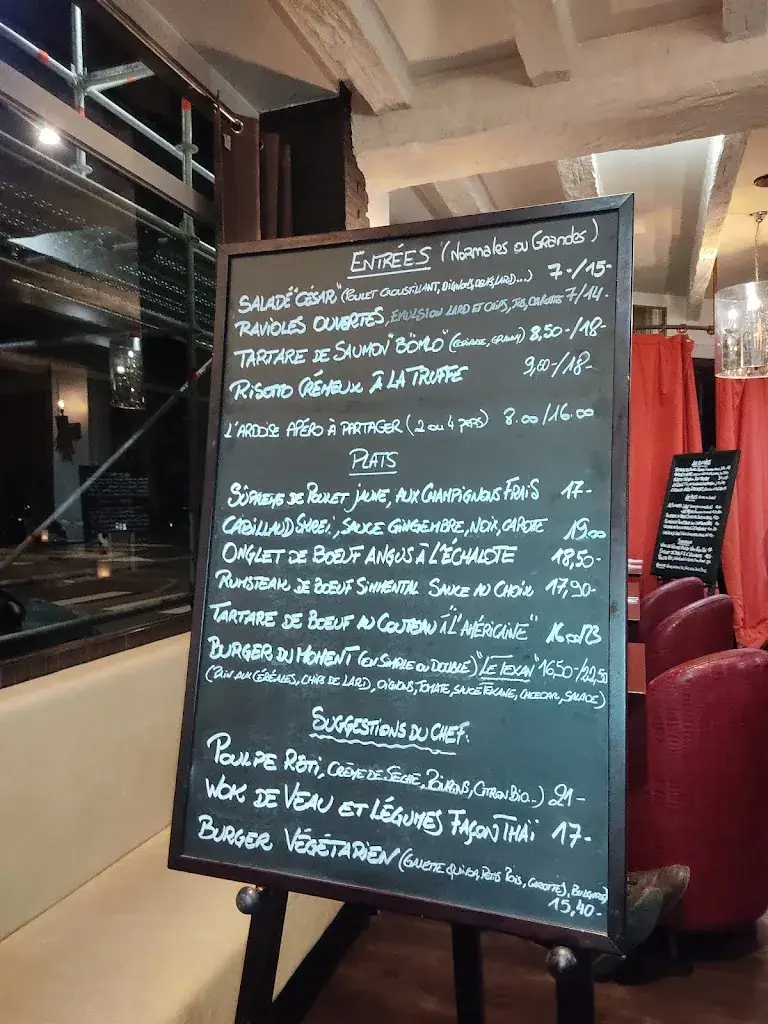 ENTRÉES (NORMALES OU GRANDES)
SALADE "CÉSAR" (POULET CROUSTILLANT, OIGNONS, OEUFS, LARD...) 7-/15-
RAVIOLES OUVERTES, EMULSION LARD ET OLIVES, CAROTTE 7/14-
TARTARE DE SAUMON "BÖMLO" (CORIANDRE, ) 8,50-/18-
RISOTTO CRÉMEUX À LA TRUFFE 9,00-/18-
L'ARDOISE APÉRO À PARTAGER (2 OU 4 PERS) 8.00/16.00
PLATS
SÛPREME DE POULET JAUNE, AUX CHAMPIGNONS FRAIS 17-
CABILLAUD SKREI, SAUCE GINGEMBRE, NOIX, CAROTE 19.00
ONGLET DE BOEUF ANGUS À L'ÉCHALOTE 18,50-
RUMSTEAK DE BOEUF SIMMENTAL SAUCE AU CHOIX 17,90-
TARTARE DE BOEUF AU COUTEAU À "L'AMÉRICAINE"
BURGER DU MOMENT (EN SIMPLE OU DOUBLE) "LE TEXAN" 16,50-/22,50
(PAIN AUX CÉRÉALES, CHIPS DE LARD, OIGNONS, TOMATE, SAUCE TEXANE, CHEDDAR, SALADE)
SUGGESTIONS DU CHEF.
POULPE RÔTI, CRÈME DE SEICHE, POIVRONS, CITRON BIO...) 21-
WOK DE VEAU ET LÉGUMES FAÇON THAÏ 17-
BURGER VÉGÉTARIEN (GALETTE QUINOA, PETITS POIS, CAROTTES, BOULGOUR)
15,40-